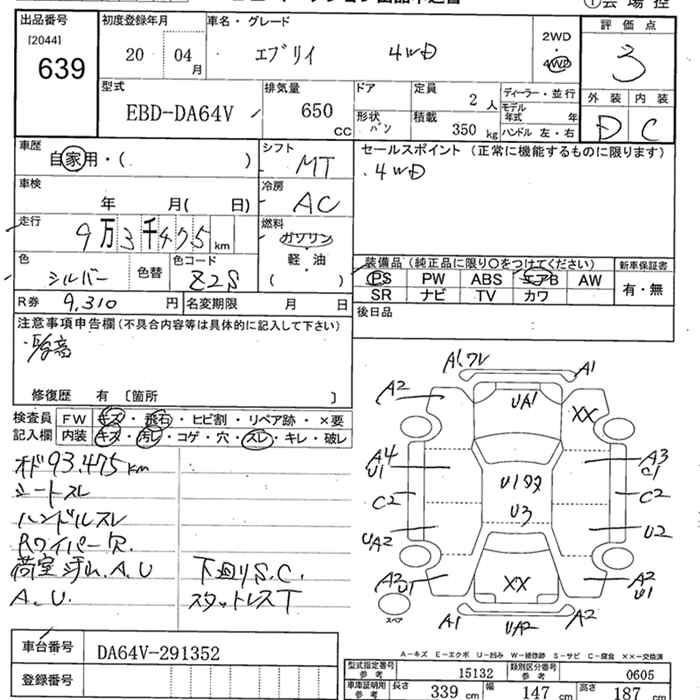 出品番号
[2044]
639
初度登録年月
20 04月
車名・グレード
エブリイ 4WD
2WD
4WD
評価点
3
外装 内装
D C
型式
EBD-DA64V
排気量
650 CC
ドア
形状 バン
定員 2人
積載 350 kg
ディーラー・並行
モデル年式 年
ハンドル 左・右
車歴
自家用・( )
シフト MT
セールスポイント (正常に機能するものに限ります)
.4WD
車検
年 月( 日)
冷房 AC
走行
9万3千475 km
燃料
ガソリン
軽・油
( )
色 シルバー 色替
色コード Z2S
装備品 (純正品に限り○をつけてください)
新車保証書
PS PW ABS エアB AW
SR ナビ TV カワ
有・無
R券 9,310 円 名変期限 月 日
後日品
注意事項申告欄(不具合内容等は具体的に記入して下さい)
修復歴 有 [箇所 ]
検査員 FW キズ・飛石・ヒビ割・リペア跡・×要
記入欄 内装 キズ・汚レ・コゲ・穴・スレ・キレ・破レ
オド93.475km
シートスレ
ハンドルスレ
Rワイパー欠.
荷室汚レ.A.U 下廻りS.C.
A.U. スタットレスT
A1,ワレ A1
A2 UA1 XX
A4 U1 A3 C1
U1タタ
C2 C2
U3
UA2 U2
A2 U1 XX A2 U1
スペア
A1 UA2 A2
A-キズ E-エクボ U-凹み W-補修跡 S-サビ C-腐食 ××-交換済
車台番号 DA64V-291352
登録番号
型式指定番号 参考 15132 類別区分番号 参考 0605
車庫証明用 参考 長さ 339 cm 幅 147 cm 高さ 187 cm